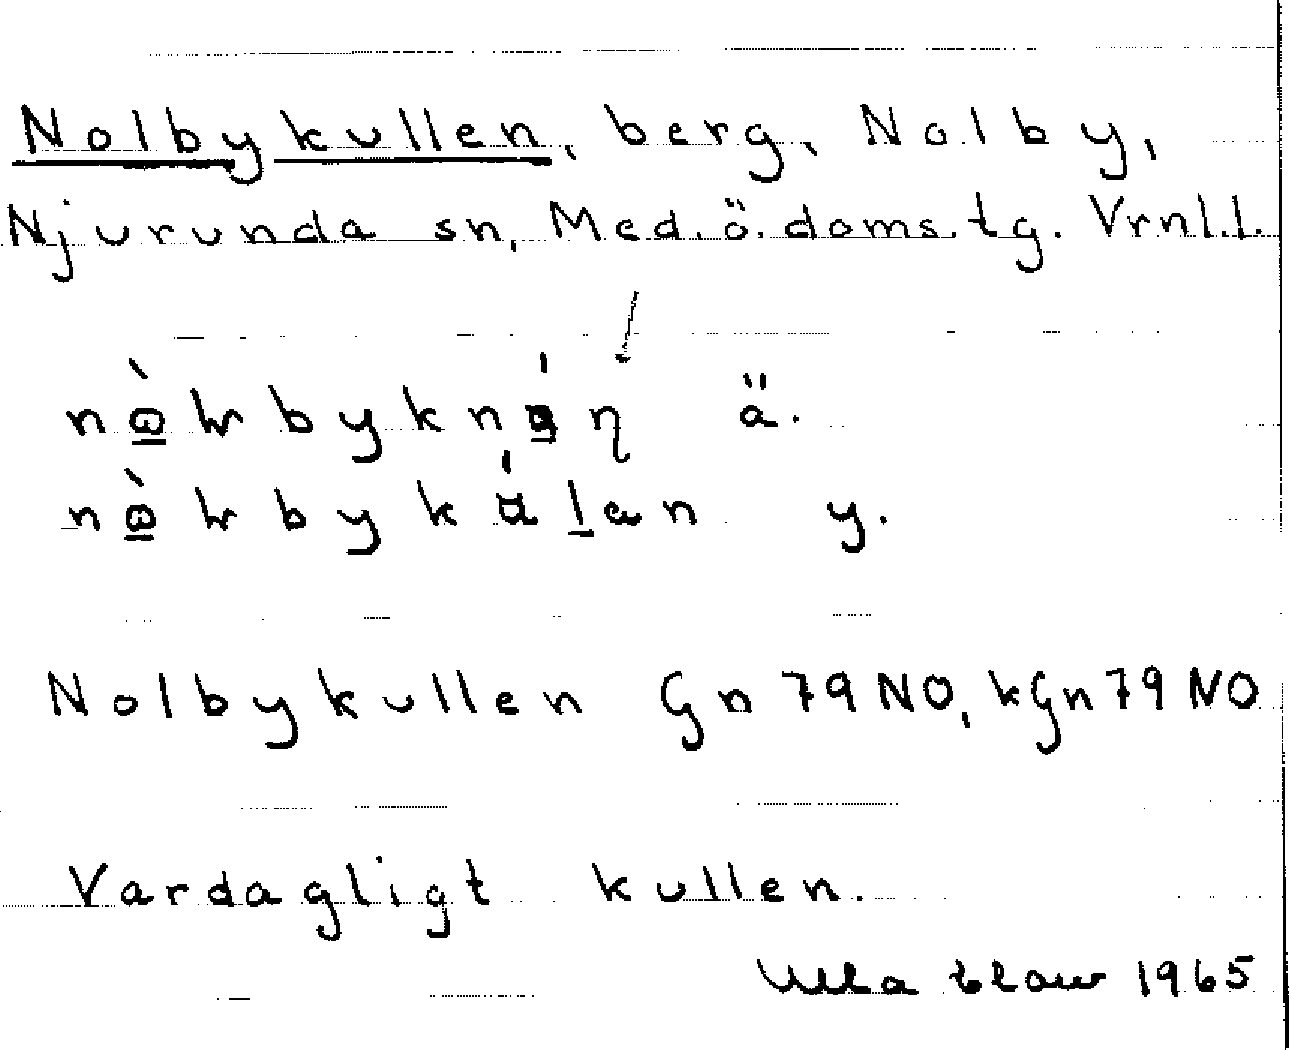 Nolbykullen, berg, Nolby,
Njurunda sn, Med.ö.doms.tg. Vrnl.l.
ä.
y.
Nolbykullen Gn 79 NO, kGn 79 NO
Vardagligt kullen.
Ulla 1965